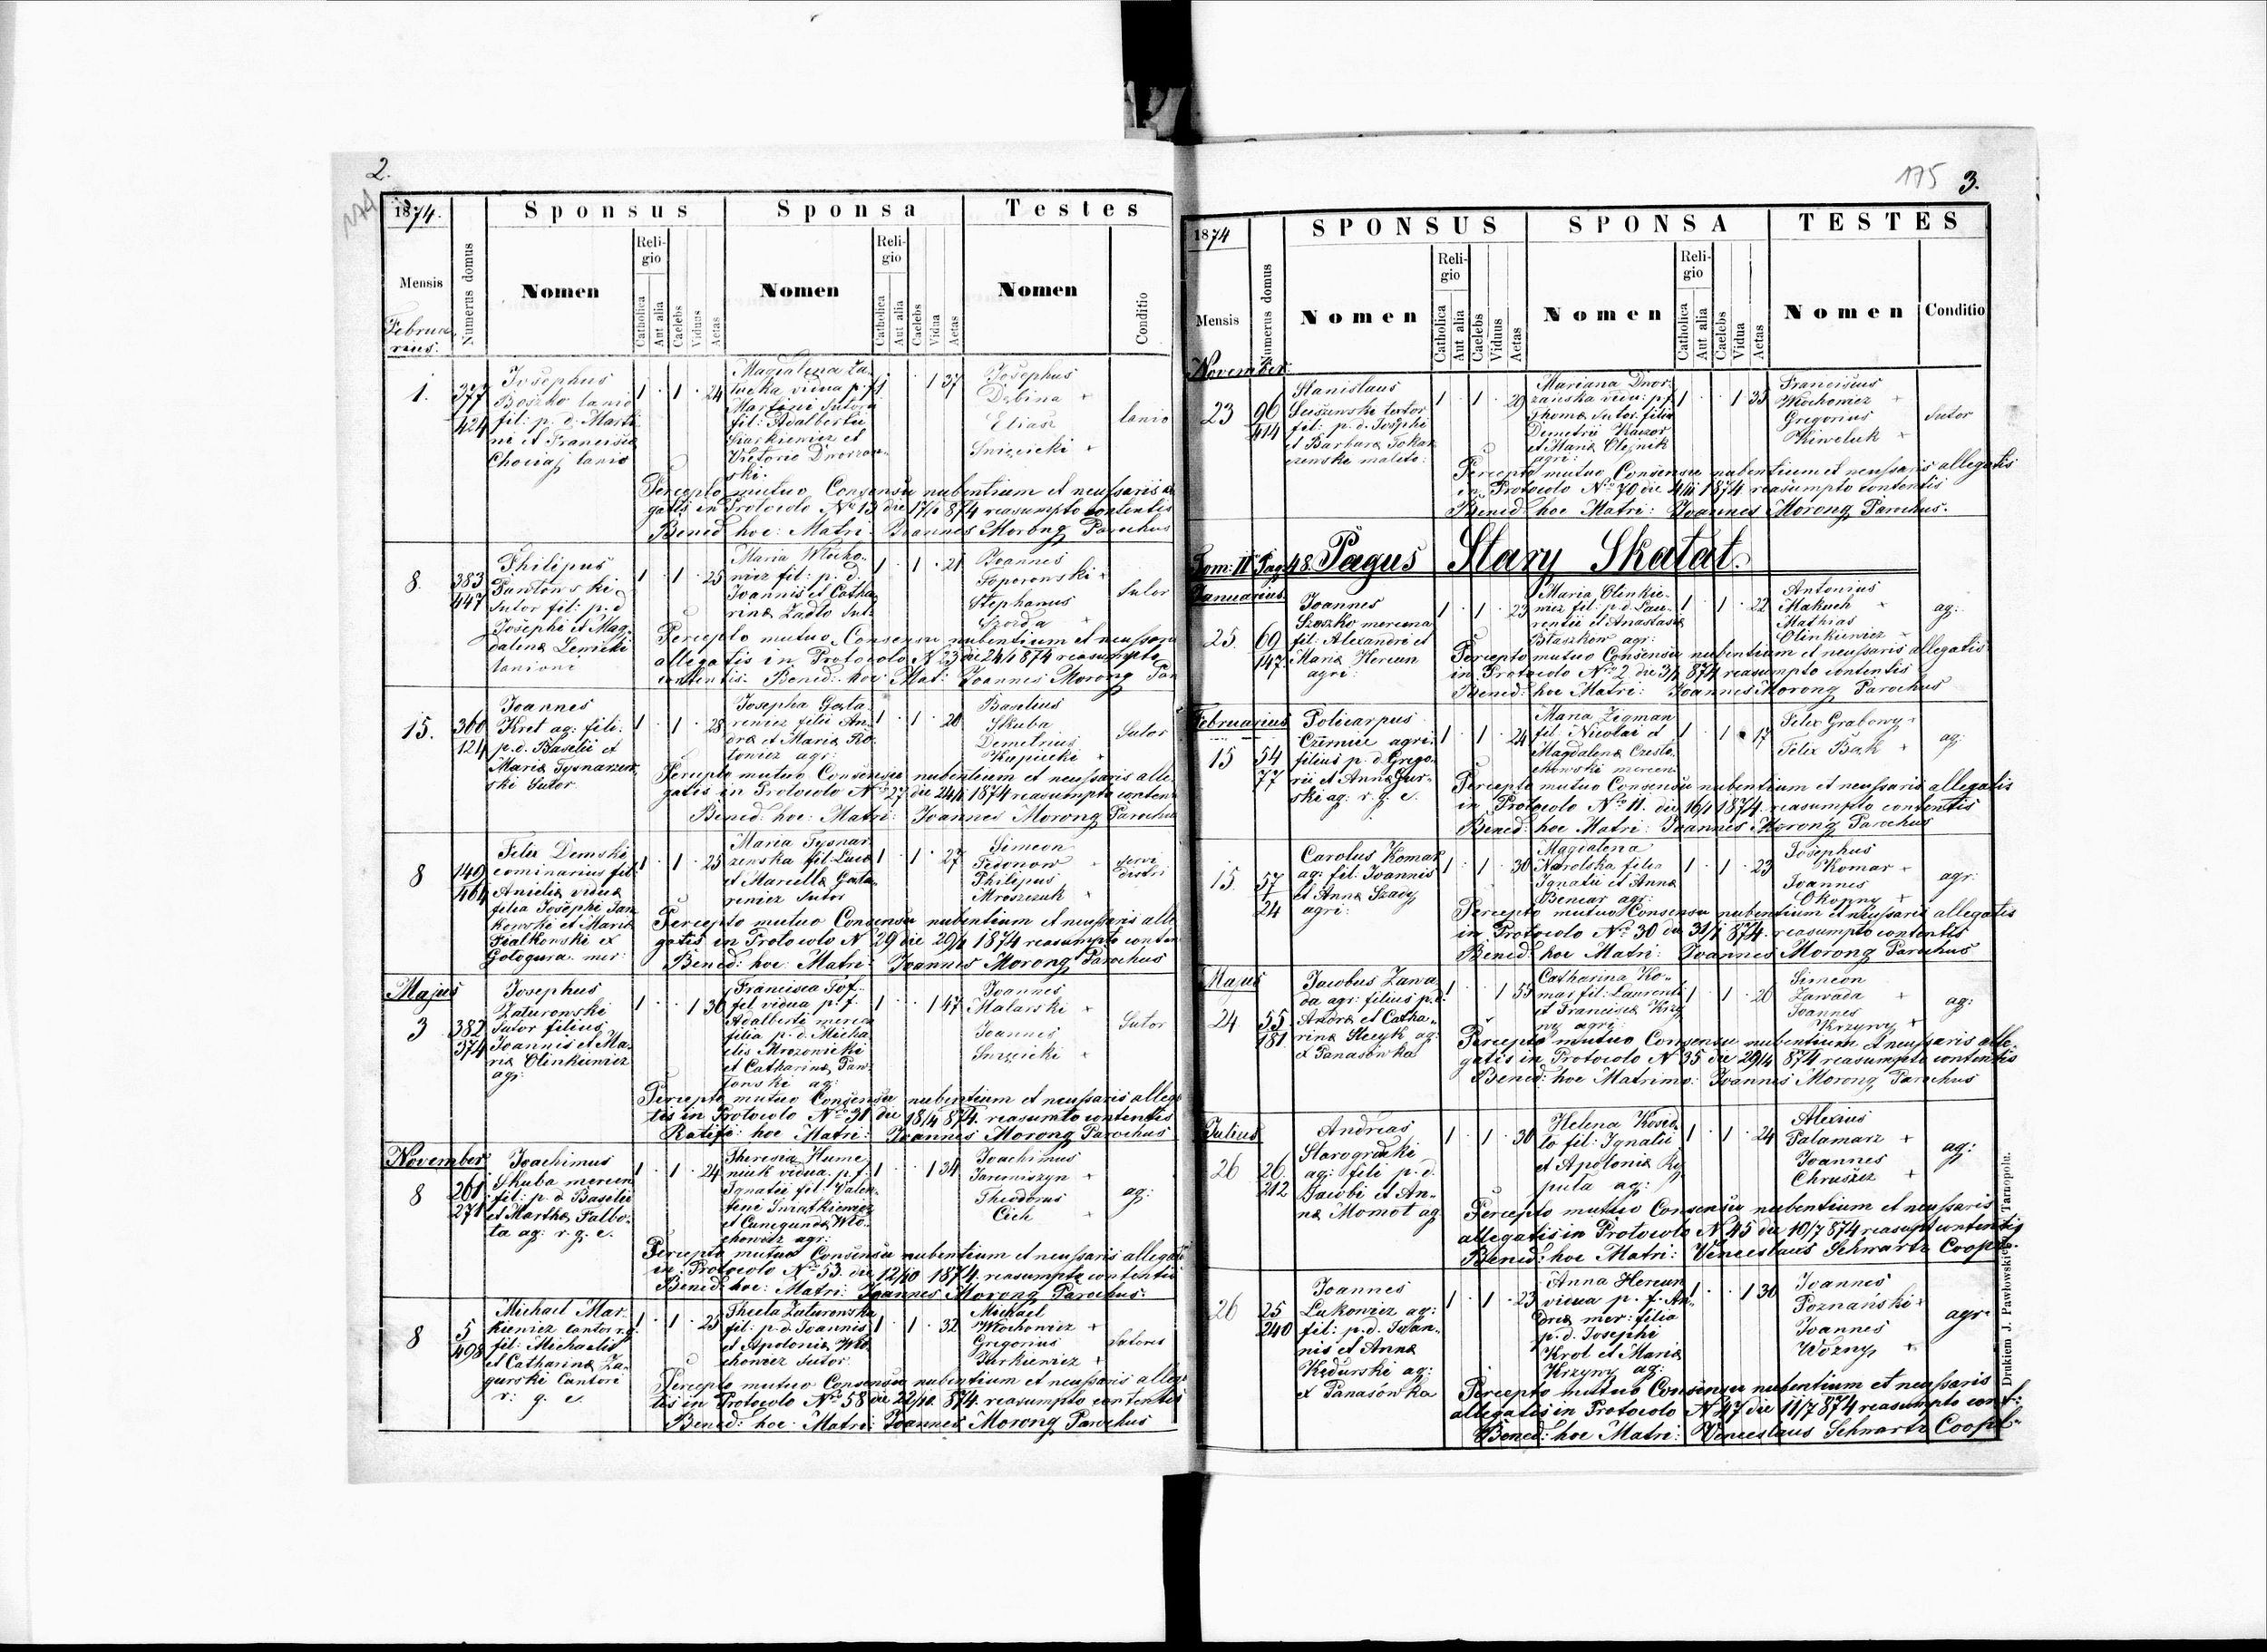 2.
174
1874.
Sponsus
Sponsa
Testes
Mensis
Numerus domus
Nomen
Religio
Catholica
Aut alia
Caelebs
Viduus
Aetas
Nomen
Religio
Catholica
Aut alia
Caelebs
Vidua
Aetas
Nomen
Conditio
Februarius.
1.
377
424
Josephus
Boszko lanio
fil: p. d. Marti
ni et Francisca
Chociaj lanio
1 . 1 . 24
Magdalena Za
łucka vidua p. f.
Martini Sutoris
fil: Adalberti
Siarkiewicz et
Victoria Dworzan
ski.
1 . . 1 37
Josephus
Drbina +
Eliasz
Sniezicki +
lanio
Percepto mutuo Consensu nubentium et neussaris a
gatis in Protocolo No 13 die 17/1 874 reasumpto contentis
Bened hoc: Matri Joannes Morong Parochus
8.
383
447
Philipus
Pawlowski
Sutor fil: p. d
Josephi et Mag
dalena Lewicki
lanioni
1 . 1 . 25
Maria Włocho
wicz fil: p. d.
Joannis et Catha
rina Zadlo Sut
1 . 1 . 21
Joannes
Toporowski +
Stephanus
Szozda +
Sutor
Percepto mutuo Consensu nubentium et neussaris
allegatis in Protocolo N 23 die 24/1 874 reasumpto
contentis. Bened: hoc Mat: Joannes Morong Par
15.
360
121
Joannes
Kret ag: fili:
p. d. Basilii et
Maria Tysnarzew
ski Sutor
1 . 1 . 28
Josepha Garta
rewicz filia An
drea et Maria Ko
towicz agr:
1 . 1 . 20
Basilius
Skuba
Demetrius
Kapucki +
Sutor
Percepto mutuo Consensu nubentium et neussaris alle
gatis in Protocolo No 27 die 24/1 1874 reasumpto conten
Bened: hoc: Matri: Joannes Morong Parochus
8
149
464
Felix Demski
cominarius fil
Anielia vidua
filia Josephi Jan
kowski et Maria
Fialkowski ex
Gologura mer:
1 . 1 . 25
Maria Tysnar
zewska fil: Luca
et Marcella Garta
rewicz Sutor
1 . 1 . 27
Simeon
Fedonow +
Philipus
Mroszczuk +
servi
distri
Percepto mutuo Consensu nubentium et neussaris alle
gatis in Protocolo N 29 die 29/1 1874 reasumpto conten
Bened: hoc: Matri: Joannes Morong Parochus
Majus
3
382
374
Josephus
Zaturowski
Sutor filius
Joannis et Ma
ria Olinkiewicz
ag:
1 . . 1 36
Francisca Tof
fel vidua p. f.
Adalberti mercen
filia p. d. Micha
elis Mrozowicki
et Catharina Paw
łowski ag:
1 . . 1 47
Joannes
Malarski +
Joannes
Sniezicki +
Sutor
Percepto mutuo Consensu nubentium et neussaris allega
tis in Protocolo No 31 die 18/4 874 reasumto contentis
Ratifi: hoc Matri: Joannes Morong Parochus
November
8
261
271
Joachimus
Skuba mercen
fil: p. d Basilii
et Martha Falbo
ta ag: r. g. c.
1 . 1 . 24
Theresia Hume
niuk vidua p. f.
Ignatii fil: Valen
tini Sniatkiewicz
et Cunegunda Wło
chowicz agr:
1 . . 1 34
Joachimus
Jaremiszyn +
Theodorus
Cich +
ag:
Percepto mutuo Consensu nubentium et neussaris allegat
in Protocolo No 53. die 12/10 1874. reasumpto contentis
Bened: hoc: Matri: Joannes Morong Parochus.
8
5
498
Michael Mar
kiewicz Cantor r.g.
fil: Michaelis
et Catharina Za
gurski Cantori
r: g. c.
1 . 1 . 25
Thecla Zaturowska
fil: p. d Joannis
et Apolonia Wło
chowicz Sutor
1 . 1 . 32
Michael
Włochowicz +
Gregorius
Jurkiewicz +
Sutores
Percepto mutuo Consensu nubentium et neussaris allega
tis in Protocolo No 58 die 22/10. 874. reasumpto contentis
Bened: hoc: Matri: Joannes Morong Parochus
175
3.
1874
SPONSUS
SPONSA
TESTES
Mensis
Numerus domus
Nomen
Religio
Catholica
Aut alia
Caelebs
Viduus
Aetas
Nomen
Religio
Catholica
Aut alia
Caelebs
Vidua
Aetas
Nomen
Conditio
November:
23
96
414
Stanislaus
Suszenski textor
fil: p. d. Josephi
et Barbara Tokar
czewski milite:
1 . 1 . 29
Mariana Dwor
zanska vidu: p. f.
Thoma Sutor. filia
Demetrii Kaczor
et Maria Olejnik
agri:
1 . . 1 35
Franciscus
Włochowicz +
Gregorius
Kiweluk +
Sutor
Percepto mutuo Consensu nubentium et neussaris allegatis
in Protocolo No 70 die 4/11 1874 reasumpto contentis
Bened hoc Matri: Joannes Morong Parochus.
Tom: II Pag 48. Pagus Stary Skałat.
Januarius
25.
69
147
Joannes
Szoszko mercena
fil: Alexandri et
Maria Hercun
agri:
1 . 1 . 23
Maria Olinkie
wicz fil: p. d. Lau
rentii et Anastasia
Błaszkow agr:
1 . 1 . 22
Antonius
Makuch +
Mathias
Olinkiewicz +
ag:
Percepto mutuo Consensu nubentium et neussaris allegatis
in Protocolo No 2 die 3/1 874 reasumpto contentis
Bened: hoc Matri: Joannes Morong Parochus
Februarius
15
54
77
Policarpus
Czerniec agri:
filius p. d. Grego
rii et Anna Jur
ski ag: r. g. c.
1 . 1 . 24
Maria Zigman
fil: Nicolai et
Magdalena Czesto
chowski mercen
1 . 1 . 17
Felix Grabowy +
Felix Bąk +
ag:
Percepto mutuo Consensu nubentium et neussaris allegatis
in Protocolo No 11. die 16/1 1874 reasumpto contentis
Bened: hoc Matri: Joannes Morong Parochus
15.
57
24
Carolus Komar
ag: fil: Joannis
et Anna Szady
agri:
1 . 1 . 30
Magdalena
Narolska filia
Ignatii et Anna
Benear agr:
1 . 1 . 23
Josephus
Komar +
Joannes
Okopny +
agr:
Percepto mutuo Consensu nubentium et neussaris allegatis
in Protocolo No 30 die 31/1 874. reasumpto contentis
Bened: hoc Matri: Joannes Morong Parochus
Majus
24
55
181
Jacobus Zawa
da agr: filius p. d.
Andrea et Catha
rina Stecyk ag:
ex Panasówka
1 . . 1 53
Catharina Ko
mar fil: Laurenti
et Francisca Krzy
wy agri:
1 . 1 . 26
Simeon
Zawada +
Joannes
Krzywy +
ag:
Percepto mutuo Consensu nubentium et neussaris alle
gatis in Protocolo N 35 die 29/4 874 reasumpto contentis
Bened: hoc Matrimo: Joannes Morong Parochus
Julius
26
26
212
Andreas
Starogrodzki
ag: fili p. d.
Jacobi et An
na Momot ag
1 . 1 . 30
Helena Kosed
lo fil: Ignatii
et Apolonia Ry
puta ag:
1 . 1 . 24
Alexius
Palamarz +
Joannes
Chruszcz +
ag:
Percepto mutuo Consensu nubentium et neussaris
allegatis in Protocolo N 45 die 10/7 874 reasumpt contentis
Bened: hoc Matri: Venceslaus Schwartz Coopt.
26
25
240
Joannes
Lukowicz ag:
fil: p. d. Joan
nis et Anna
Kędurski ag:
ex Panasówka
1 . 1 . 23
Anna Hercun
vidua p. f. An
drea mer: filia
p. d. Josephi
Krol et Maria
Krzywy ag:
1 . . 1 30
Joannes
Poznański +
Joannes
Wozny +
agr:
Percepto mutuo Consensu nubentium et neussaris
allegatis in Protocolo N 47 die 11/7 874 reasumpto cont:
Bened: hoc Matri: Venceslaus Schwartz Coopt.
Drukiem J. Pawłowskiego Tarnopolu.